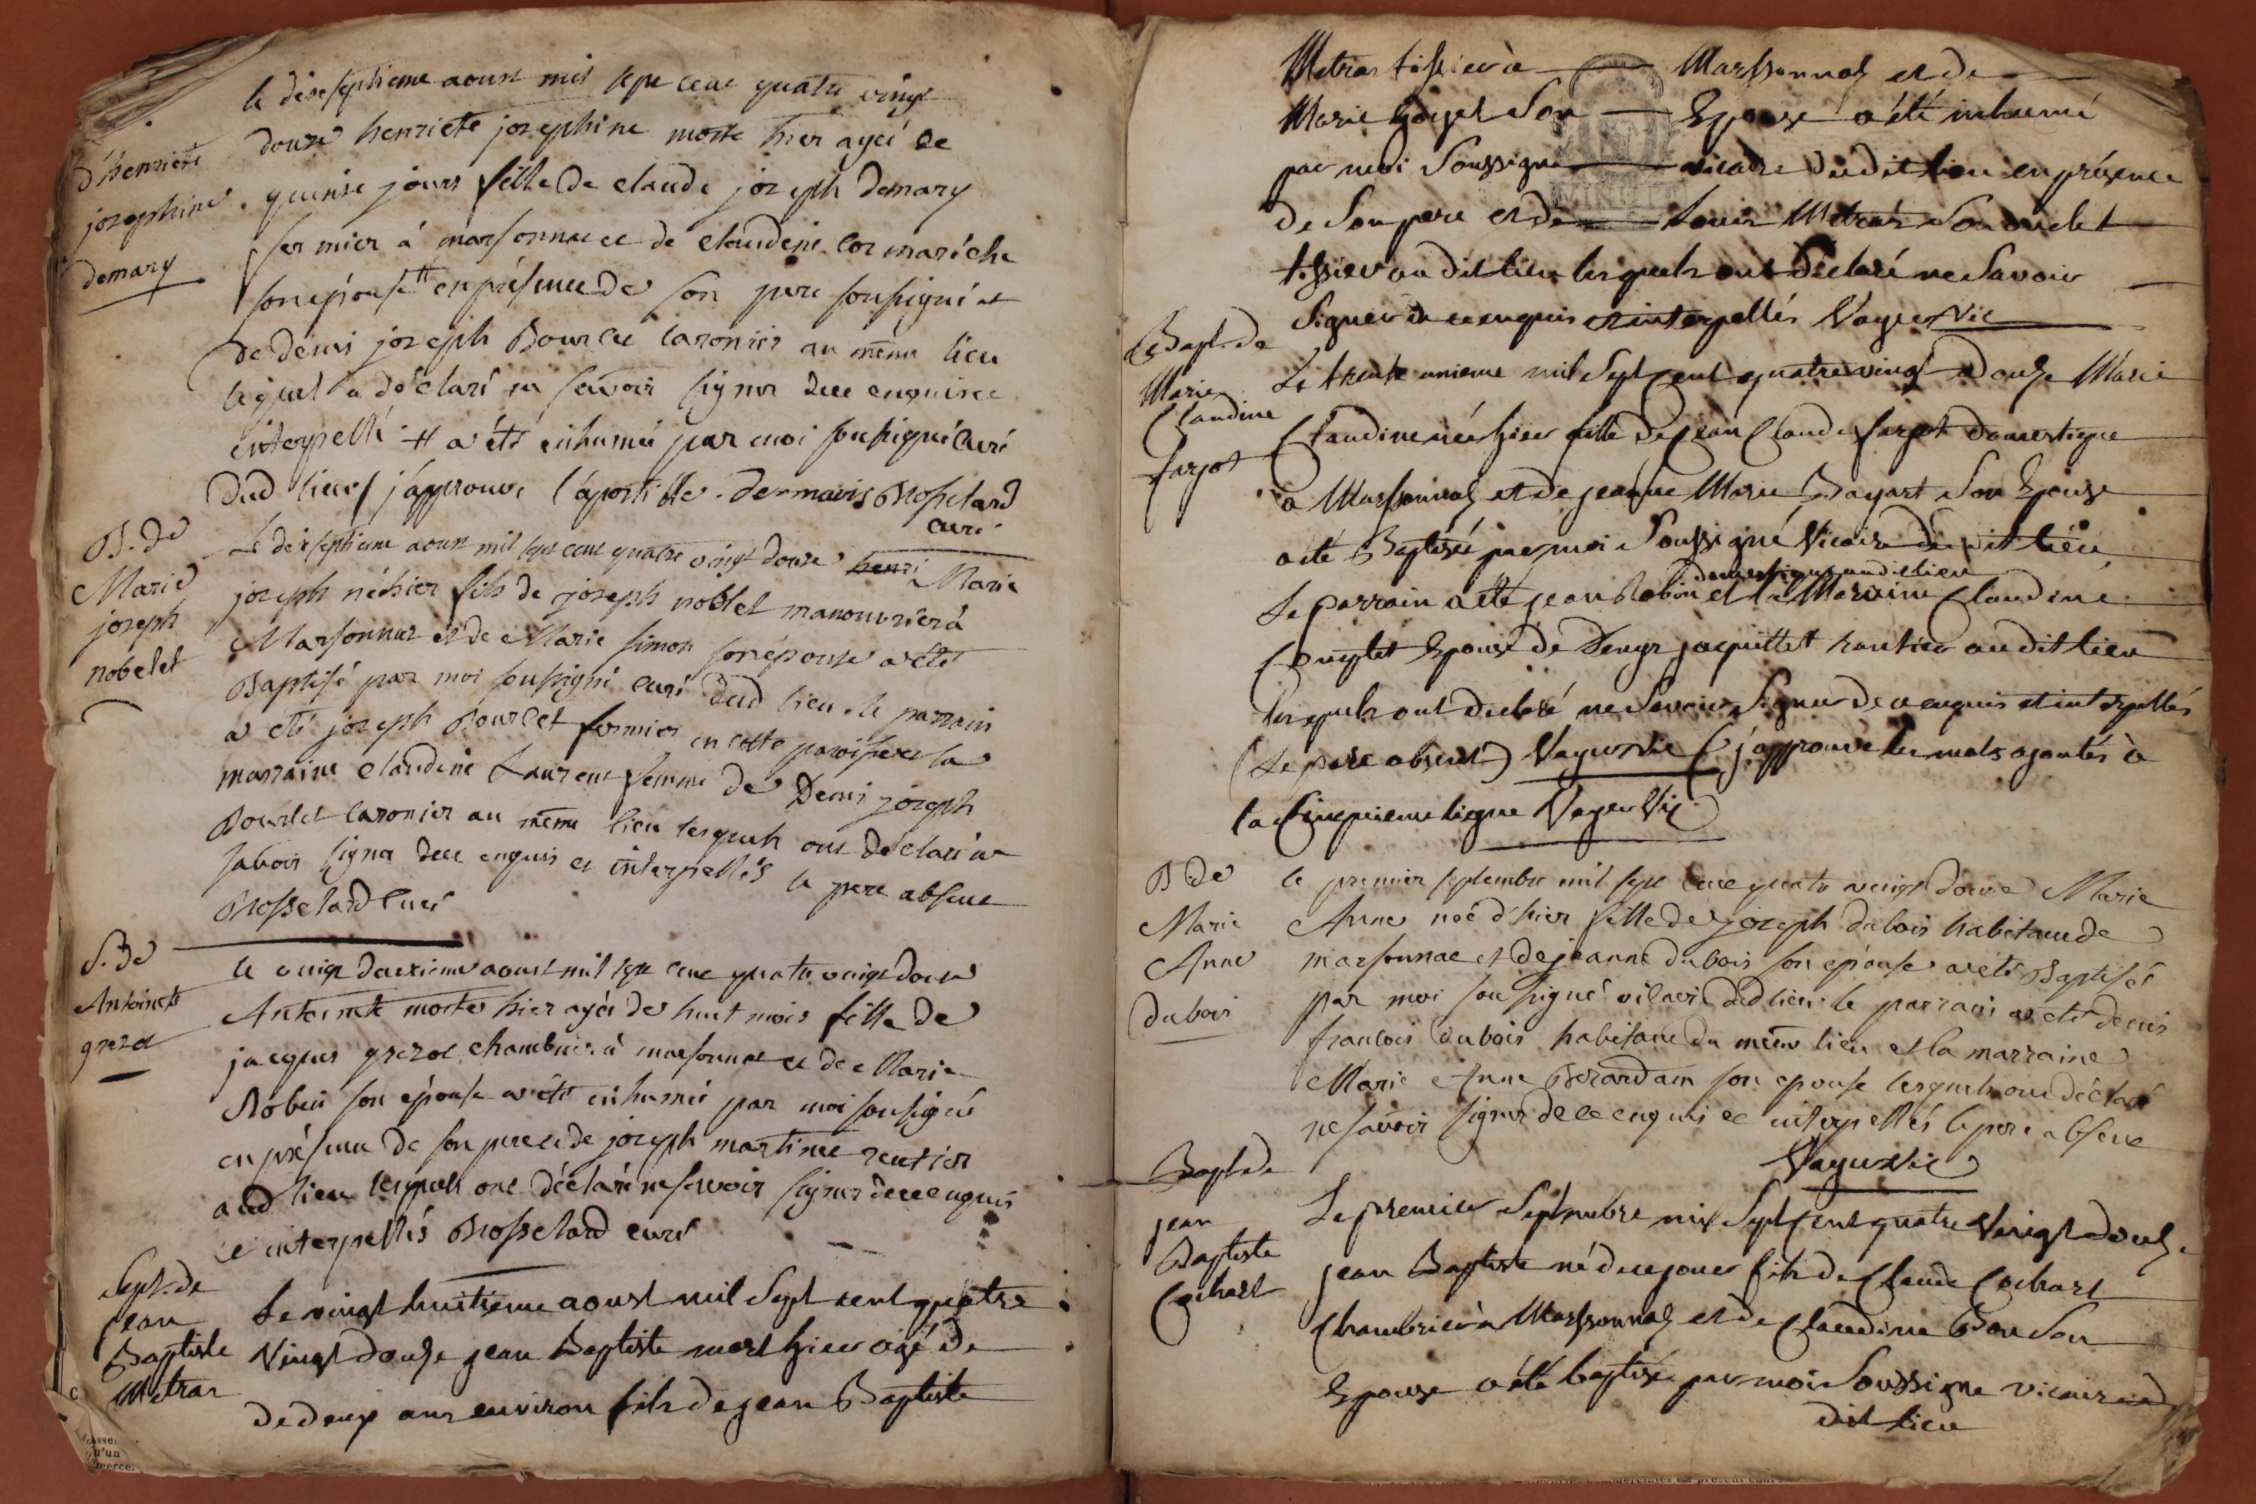 d'henriete
josephine
demary
le dixseptieme aoust mil sept cent quatre vingt
douze henriete josephine morte hier agéé de
quinse jours fille de claude joseph demary
fermier á marsonnas et de claudine cormaréche
son épouse # en présence de son pere soussigné et
de denis joseph Bourcet taronier au même lieu
lequel a déclaré ne scavoir signer dece enquis et
interpellé # a été inhumée par moi soussigné Curé
dud lieu / j'approuve l'apostille . demaris Brosselard
curé
B. de
Marie
joseph
nobelet
Le dixseptieme aoust mil sept cent quatre vingt douze henri Marie
joseph né hier fils de joseph noblet manouvrier á
Marsonnas et de Marie simon son épouse a été
Baptisé par moi soussigné curé dud lieu . le parrain
a été joseph Bourcet fermier en cette paroisse et la
marraine claudine Laurent femme de Denis joseph
Bourcet taronier au même lieu lesquels ont déclaré ne
savoir signer dece enquis et interpellés le pere absent
Brosselard Curé
S. de
Antoinete
grezot
le vingt deuxieme aoust mil sept cent quatre vingt douze
Antoinete morte hier agéé de huit mois fille de
jacques grezot chambrier á marsonnas et de Marie
Robin son épouse a été inhumée par moi soussigné
en présence de son pere et de joseph martinet rentier
aud lieu lesquels ont déclaré ne scavoir signer dece enquis
et interpellés Brosselard curé
Sept. de
jean
Baptiste
Metras
Le vingt huitieme aoust mil Sept cent quatre
Vingt douze jean Baptiste mort hier agé de
de deux ans environ fils de jean Baptiste
Metras tissier à Marssonnas et de
Marie Goyet Son Epouse a été inhumé
par moi Soussigné vicaire dudit lieu en présence
de Son pere et de Louis Metras Son oncle
tissier au dit lieu lesquels ont declaré ne Savoir
Signer de ce enquis et interpellés Vayer Vic
Bapt. de
Marie
Claudine
fargot
Le trente unieme mil Sept Cent quatre vingt Douze Marie
Claudine née hier fille de jean Claude fargot domestique
à Marssonnas et de jeanne Marie Bayart Son Epouse
a été Baptisée par moi Soussigné Vicaire du dit lieu
domestique au dit lieu
Le parrain a été jean Robin et la Marraine Claudine
Couplet Epouse de Denys jaquettet rentier au dit lieu
lesquels ont declaré ne Savoir Signer de ce enquis et interpellés
(Le pere absent) Vayer Vic ( j'approuve les mots ajoutés à
la Cinquieme ligne Vayer Vic )
B de
Marie
Anne
dubois
le premier septembre mil sept cent quatre vingt douze Marie
Anne née d'hier fille de joseph dubois habitant de
marsonnas et de jeanne dubois son épouse a été Baptiséé
par moi soussigné vicaire dud lieu . le parrain a été denis
francois dubois habitant du même lieu et la marraine
Marie Anne Berardam son epouse lesquels ont déclaré
ne savoir signer de ce enquis et interpellés le pere absent
Vayer Vic
Bapt de
jean
Baptiste
Cochart
Le premier Septembre mil Sept Cent quatre Vingt Douze
jean Baptiste né de ce jour fils de Claude Cochart
Chambrier à Marssonnas et de Claudine Bon Son
Epouse a été baptisé par moi Soussigné vicaire du
dit lieu